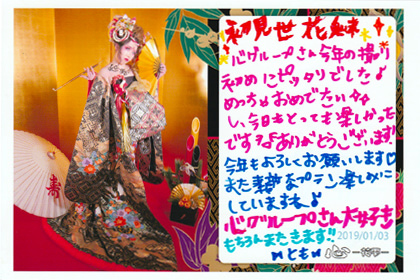 初見世花魁
心グループさん今年の撮り
初めにピッタリでした♪
めっちゃおめでたいな
し、今日もとっても楽しかった
ですするありがとうございます!
今年もよろしくお願いします♡
また素敵なプラン楽しみに
していますね♪
心グループさん大好き
もちろんまたきます!!
とも
2019/01/03
心
寿